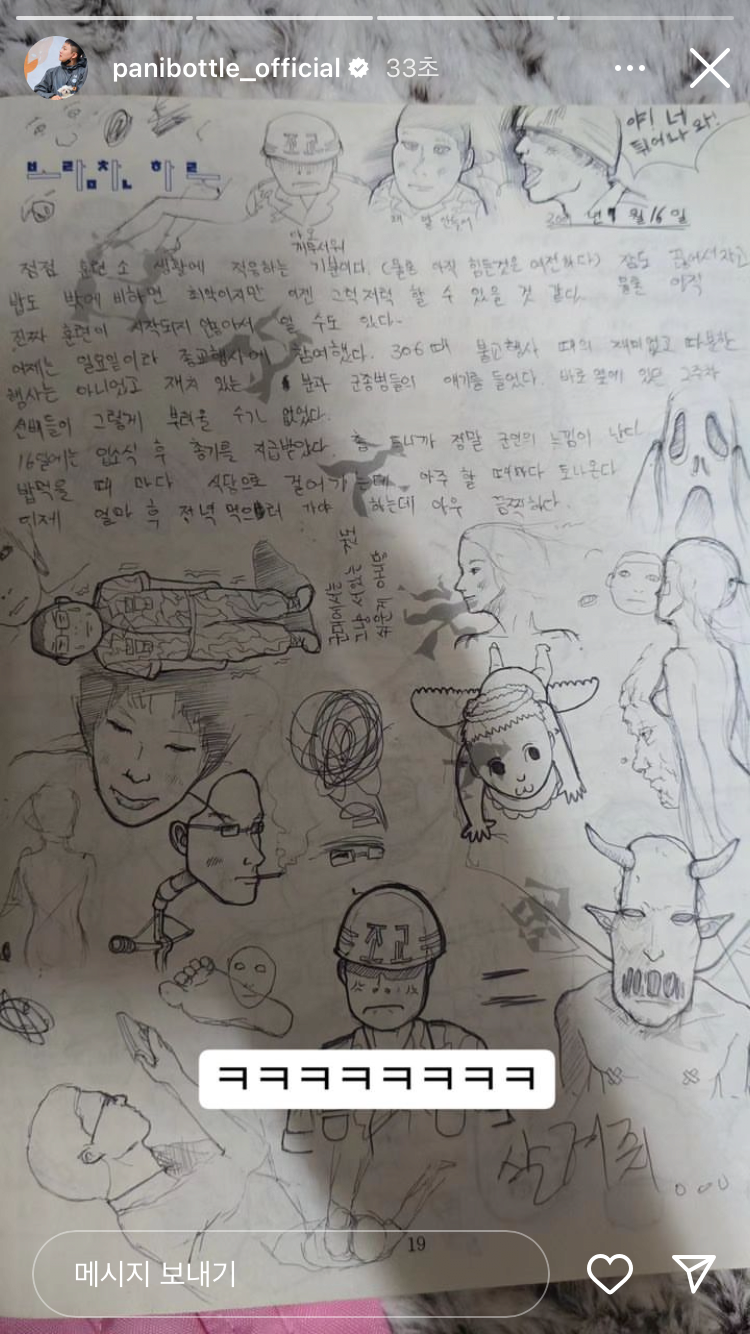 panibottle_official 33초
조교
야! 너
튀어나와!
보람찬 하루
년 1 월 16 일
점점 훈련소 생활에 적응하는 기분이다. (물론 아직 힘든것은 여전하다) 잠도
밥도 밖에 비하면 최악이지만 이젠 그럭저럭 할 수 있을 것 같다. 물론 아직
진짜 훈련이 시작되지 않아서 일 수도 있다.
어제는 일요일이라 종교행사에 참여했다. 306때 불교행사 때의 재미없고 따분한
행사는 아니었고 재치 있는 분과 군종병들의 얘기를 들었다. 바로 옆에 있는 2주차
선배들이 그렇게 부러울 수가 없었다.
16일에는 입소식 후 총기를 지급받았다. 총 드니까 정말 군인의 느낌이 난다
밥먹을 때 마다 식당으로 걸어가는데 아주 할 때마다 토나온다
이제 얼마 후 저녁 먹으러 가야 하는데 아우 끔찍하다.
군대에서는
그냥 서있는 것도
조교
ㅋㅋㅋㅋㅋㅋㅋㅋ
살려줘...
19
메시지 보내기